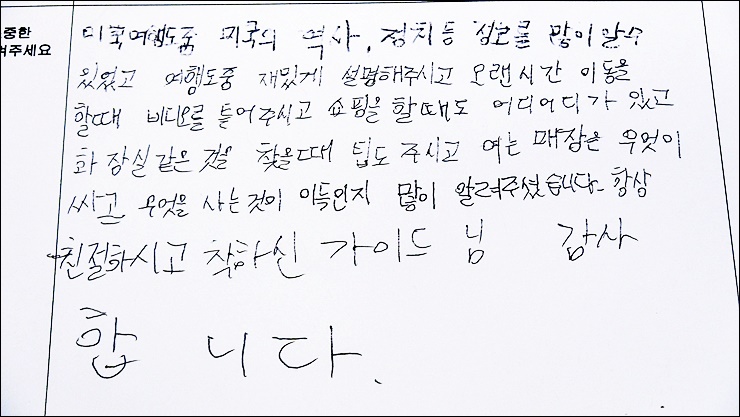 중한
겨주세요
미국여행도중 미국의 역사, 정치등 정보를 많이 알수
있었고 여행도중 재밌게 설명해주시고 오랜시간 이동을
할때 비디오를 틀어주시고 쇼핑을 할때도 어디어디가 있고
화장실 같은 것을 찾을때 팁도 주시고 여는 매장은 무엇이
싸고 무엇을 사는것이 이득인지 많이 알려주셨습니다. 항상
친절하시고 착하신 가이드 님 감사
합 니 다.